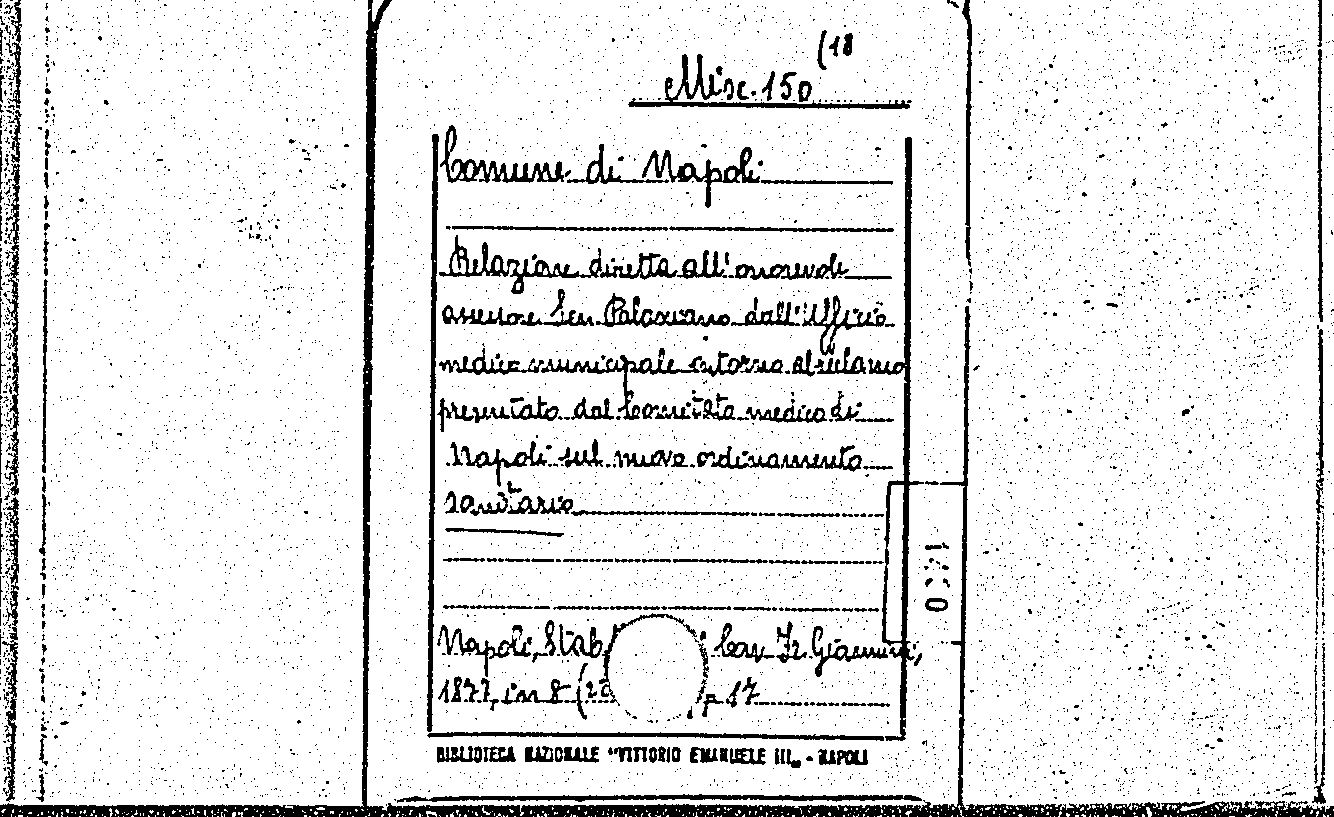 (18
Misc. 150
Comune di Napoli
Relazione diretta all'onorevole
assessore Sen Palasciano dall'Ufficio
medico municipale intorno al reclamo
presentato dal Comitato medico di
Napoli sul nuovo ordinamento
sanitario
Napoli, Stab Cav. Fr. Giannini,
1877, in 8 p 17
BIBLIOTECA NAZIONALE "VITTORIO EMANUELE III„ - NAPOLI